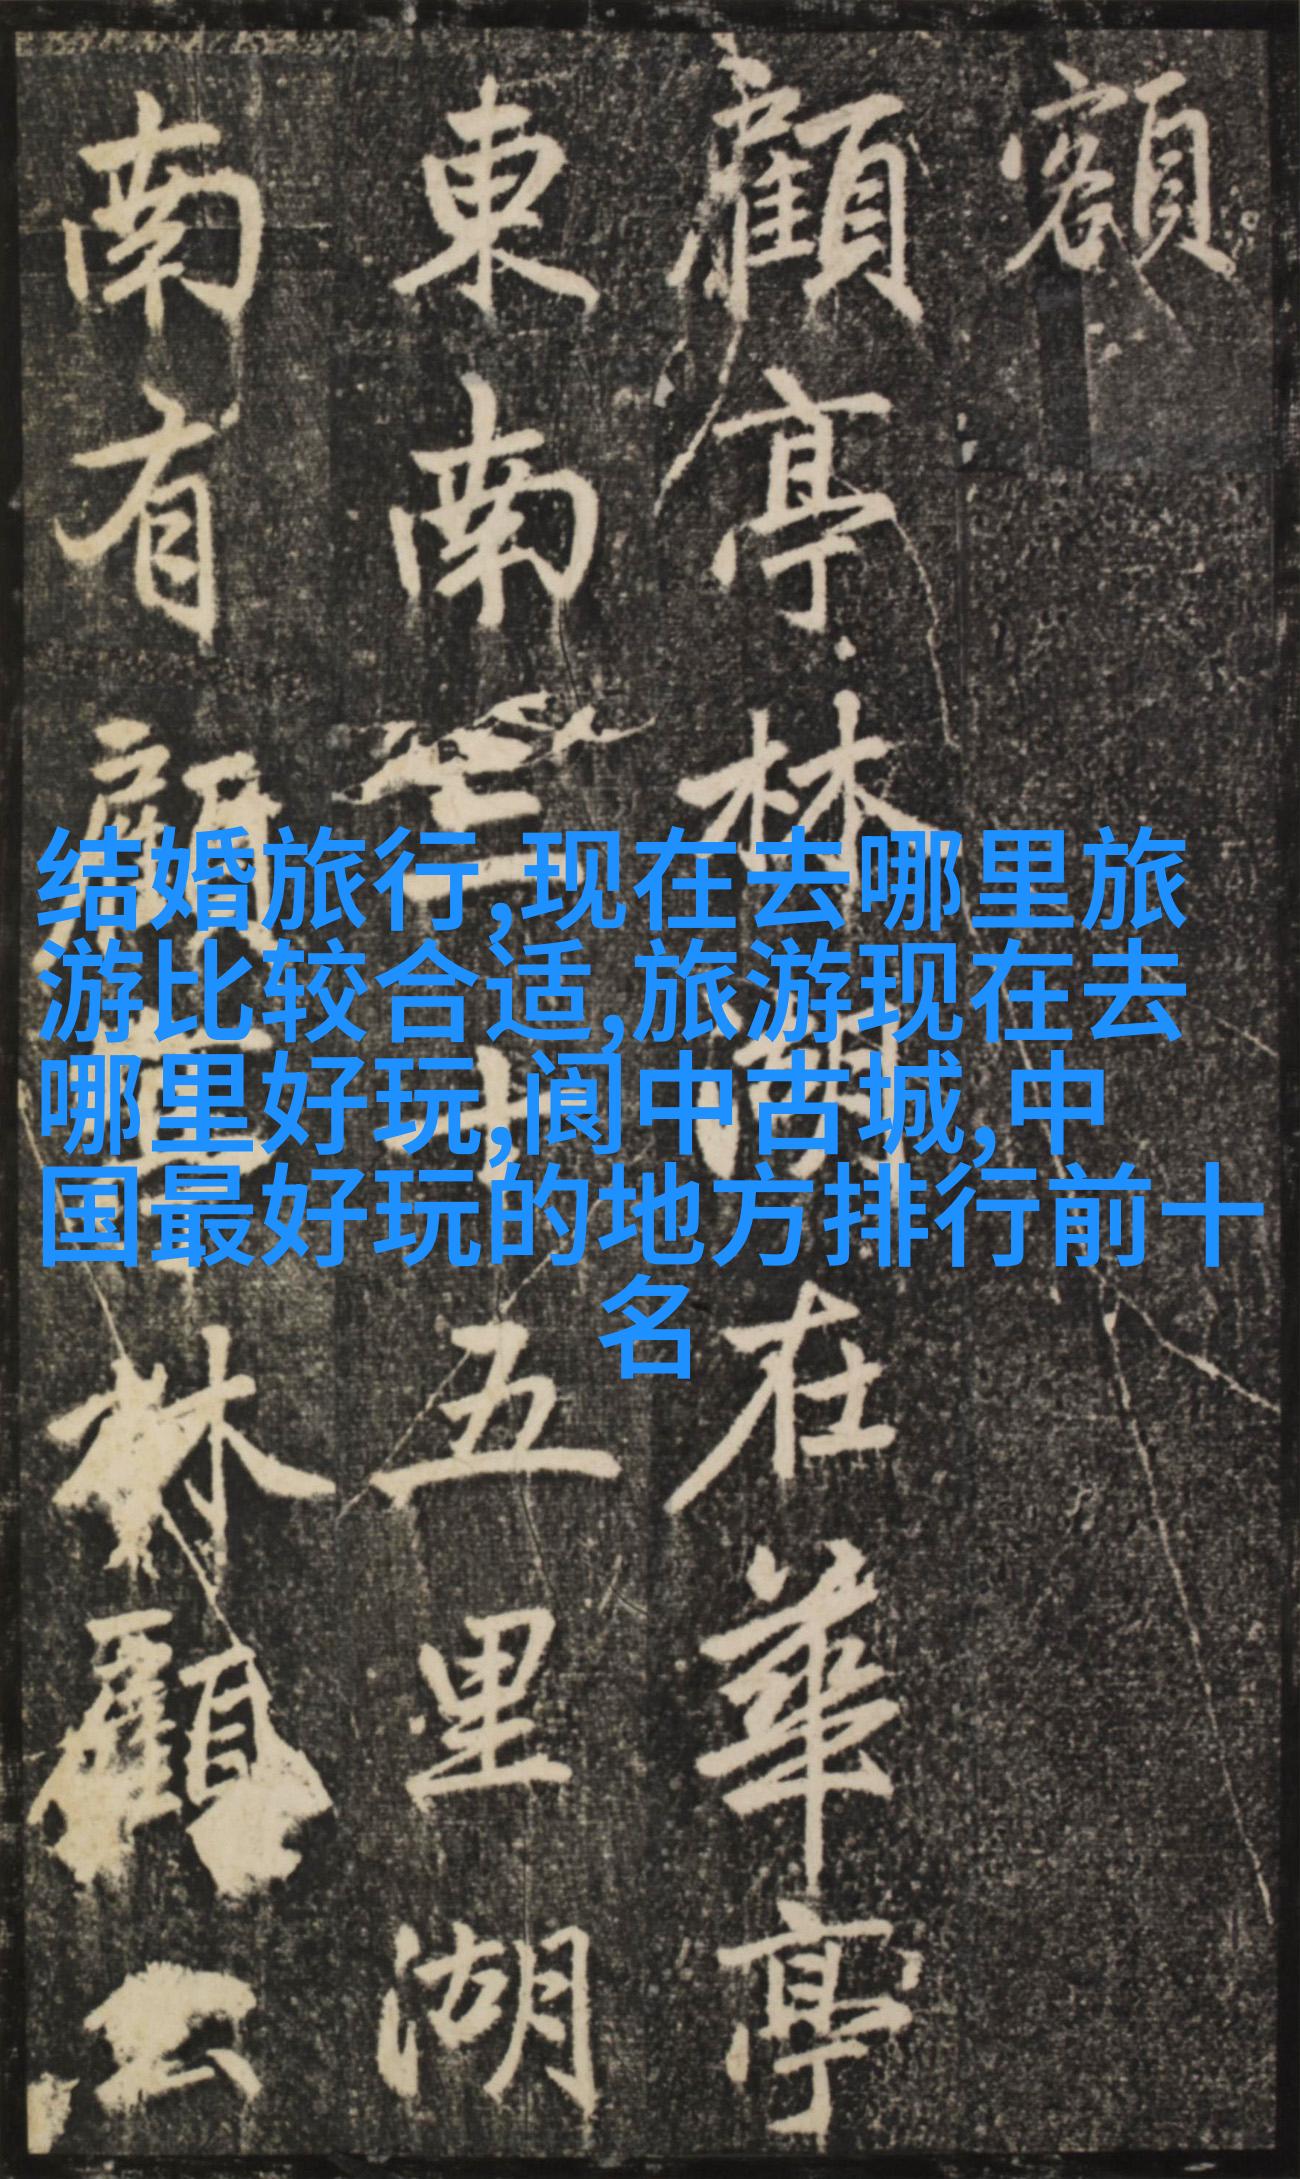 額
顧亭林湖在華亭
東南三十五里湖
南有顧亭林顧公
结婚旅行,现在去哪里旅
游比较合适,旅游现在去
哪里好玩,阆中古城,中
国最好玩的地方排行前十
名